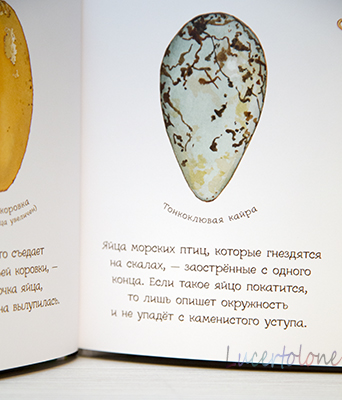 коровка
увеличен)
съедает
ей коровки, —
яйца,
на вылупилась.
Тонкоклювая кайра
Яйца морских птиц, которые гнездятся
на скалах, — заострённые с одного
конца. Если такое яйцо покатится,
то лишь опишет окружность
и не упадёт с каменистого уступа.
Lucertolone